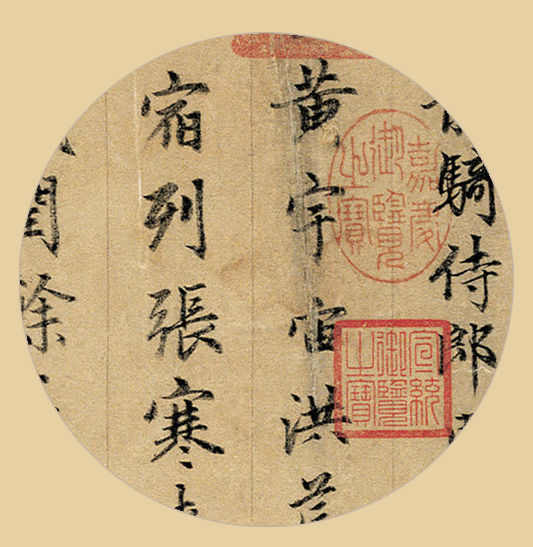 騎侍郎
黄宇宙洪荒
宿列張寒
閏餘
嘉慶
御覽
之寶
宣統
御覽
之寶